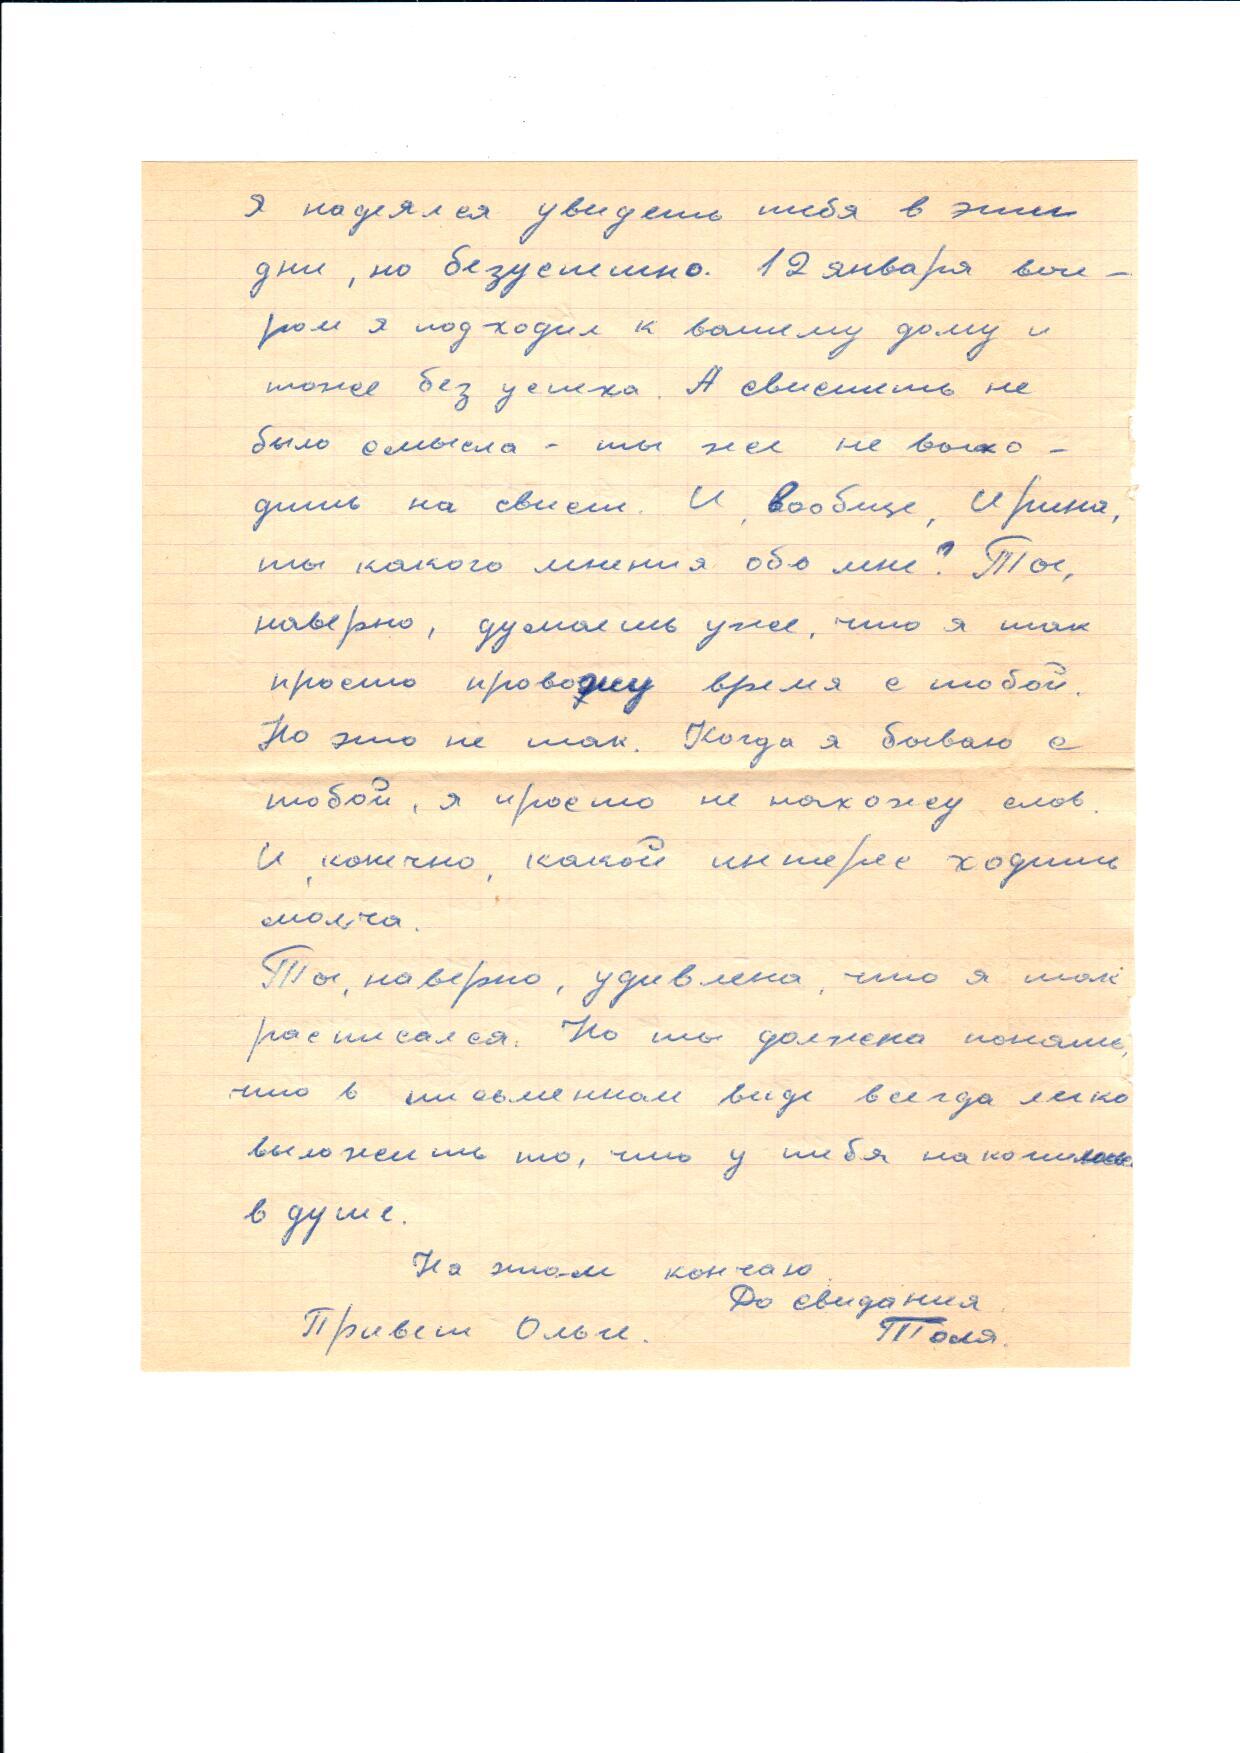 Я надеялся увидеть тебя в эти
дни, но безуспешно. 12 января вече-
ром я подходил к вашему дому и
тоже без успеха. А свистеть не
было смысла - ты же не выхо-
дишь на свист. И, вообще, Ирина,
ты какого мнения обо мне? Ты,
наверно, думаешь уже, что я так
просто провожу время с тобой.
Но это не так. Когда я бываю с
тобой, я просто не нахожу слов.
И, конечно, какой интерес ходить
молча.
Ты, наверно, удивлена, что я так
расписался. Но ты должна понять,
что в письменном виде всегда легко
выложить то, что у тебя накопилось
в душе.
На этом кончаю.
До свидания
Привет Ольге. Толя.